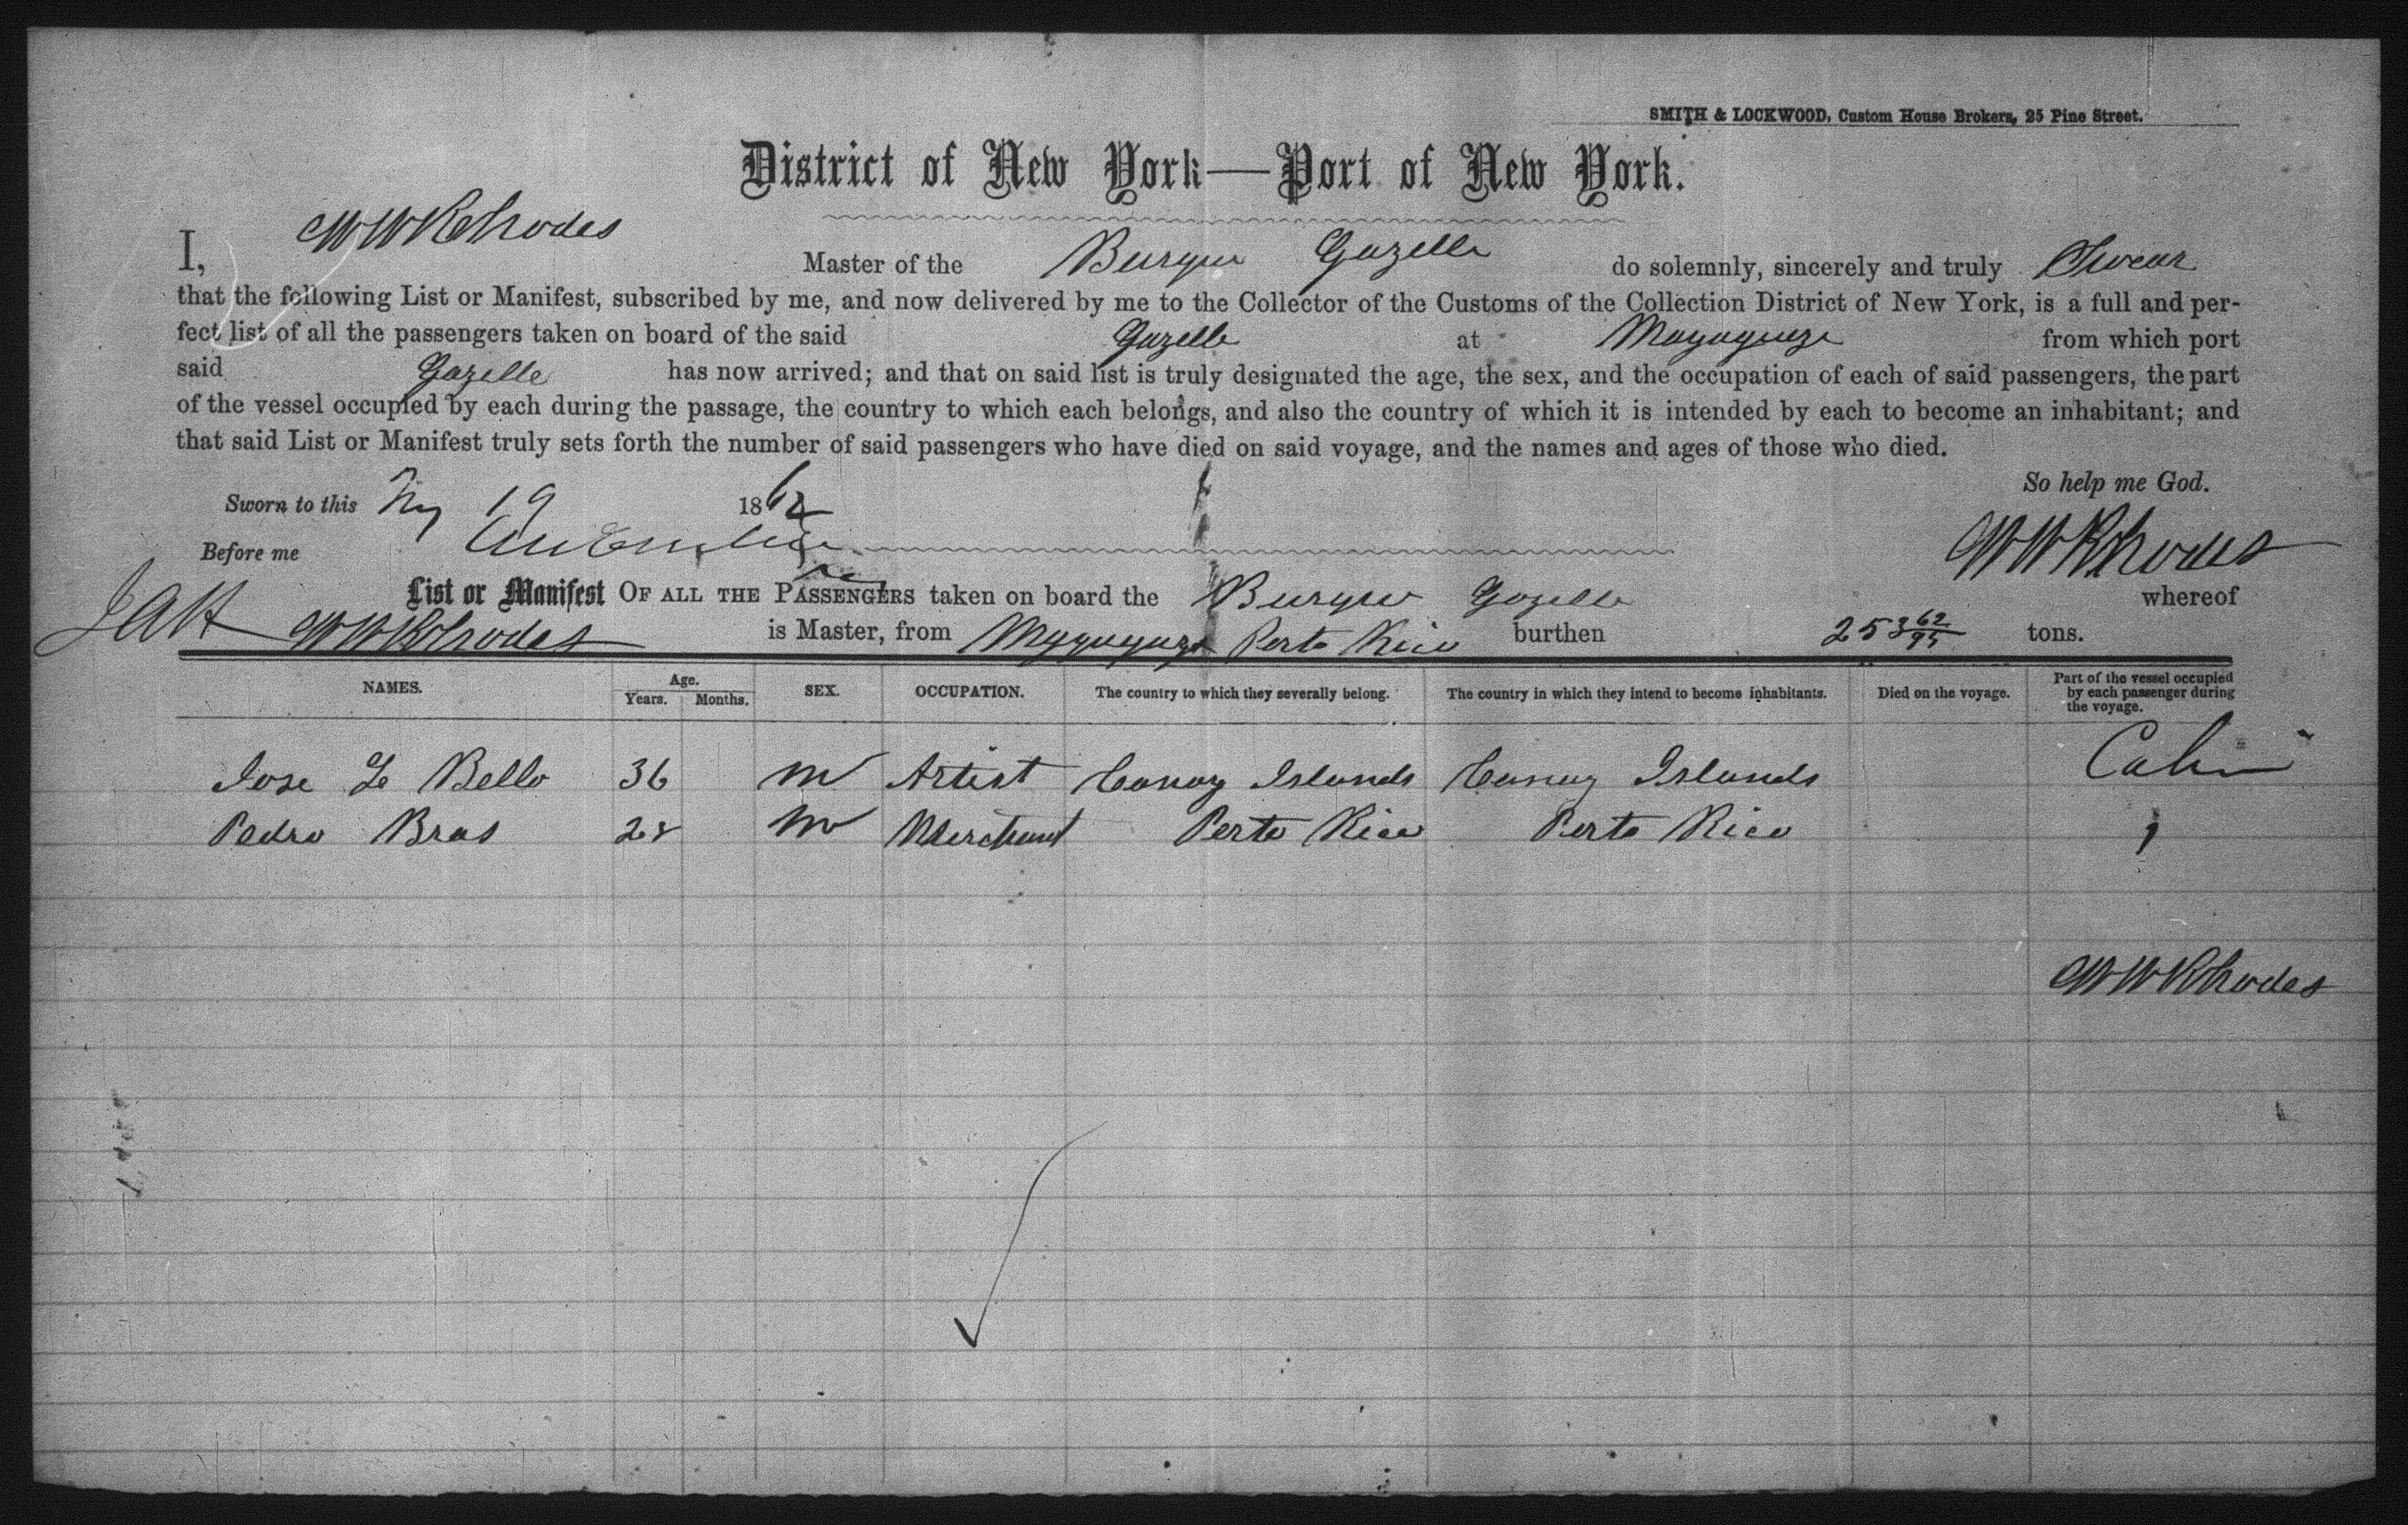 SMITH & LOCKWOOD, Custom House Brokers, 25 Pine Street.
District of New York—Port of New York.
I, W W Rhodes Master of the Gazelle do solemnly, sincerely and truly Swear
that the following List or Manifest, subscribed by me, and now delivered by me to the Collector of the Customs of the Collection District of New York, is a full and per-
fect list of all the passengers taken on board of the said Gazelle at Mayaguez from which port
said Gazelle has now arrived; and that on said list is truly designated the age, the sex, and the occupation of each of said passengers, the part
of the vessel occupied by each during the passage, the country to which each belongs, and also the country of which it is intended by each to become an inhabitant; and
that said List or Manifest truly sets forth the number of said passengers who have died on said voyage, and the names and ages of those who died.
So help me God.
Sworn to this 19 1862
W W Rhodes
Before me
List or Manifest OF ALL THE PASSENGERS taken on board the Gazelle whereof
W W Rhodes is Master, from Mayaguez Porto Rico burthen 253 62/95 tons.
NAMES. Age. Years. Months. SEX. OCCUPATION. The country to which they severally belong. The country in which they intend to become inhabitants. Died on the voyage. Part of the vessel occupied by each passenger during the voyage.
Jose Bello 36 m Artist Canary Islands Canary Islands Cabin
Pedro Bras 28 m Merchant Porto Rico Porto Rico
W W Rhodes